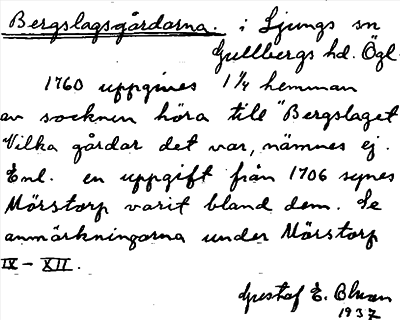 Bergslagsgårdarna. i Ljungs sn
Gullbergs hd. Ögl.
1760 uppgives 1 1/4 hemman
av socknen höra till "Bergslaget
Vilka gårdar det var, nämnes ej.
Enl. en uppgift från 1706 synes
Mörstorp varit bland dem. Se
anmärkningarna under Mörstorp
IX - XII.
Gustaf E. Blman
1937